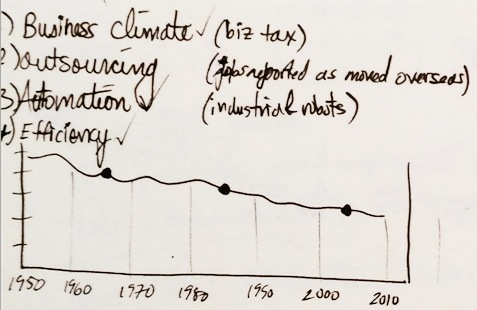 1) Business climate ✓ (biz tax)
2) outsourcing (jobs reported as moved overseas)
3) Automation ✓ (industrial robots)
4) Efficiency ✓
1950 1960 1970 1980 1950 2000 2010